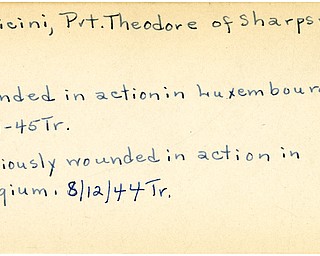 icini, Pvt. Theodore of Sharps-
nded in action in Luxembour
-45 Tr.
iously wounded in action in
gium. 8/12/44 Tr.